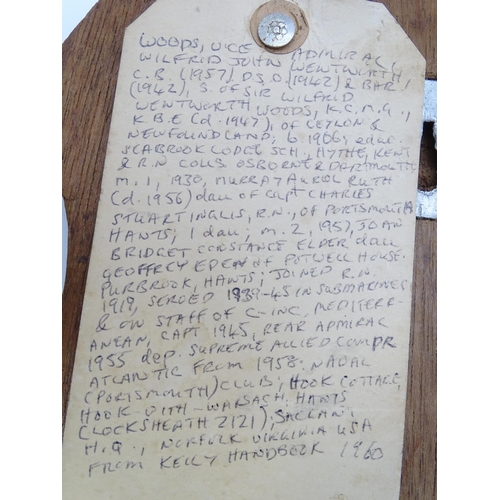 WOODS, VICE ADMIRAL,
WILFRID JOHN WENTWORTH,
C.B. (1957) D.S.O. (1942) & BAR
(1942), S. OF SIR WILFRID
WENTWORTH WOODS, K.C.M.G.,
K.B.E (d. 1947), OF CEYLON &
NEWFOUNDLAND; b. 1906; educ.
SEABROOK LODGE SCH., HYTHE, KENT
& R.N COLLS OSBORNE & DARTMOUTH;
m. 1, 1930, MURRAY AUROL RUTH
(d. 1956) dau OF CAPT CHARLES
STUART INGLIS, R.N., OF PORTSMOUTH
HANTS; 1 dau; m. 2, 1957, JOAN
BRIDGET CONSTANCE ELDER dau
GEOFFREY EDEN OF POTWELL HOUSE.
PURBROOK, HANTS; JOINED R.N.
1919, SERVED 1939-45 IN SUBMARINES
& ON STAFF OF C-INC, MEDITERR-
ANEAN, CAPT 1945, REAR ADMIRAL
1955 dep. SUPREME ALLIED COMDR
ATLANTIC FROM 1958: NAVAL
(PORTSMOUTH) CLUB; HOOK COTTAGE,
HOOK-WITH-WARSASH. HANTS
(LOCKSHEATH 2121), SACLANT
H.Q., NORFOLK VIRGINIA USA
FROM KELLY HANDBOOK 1960